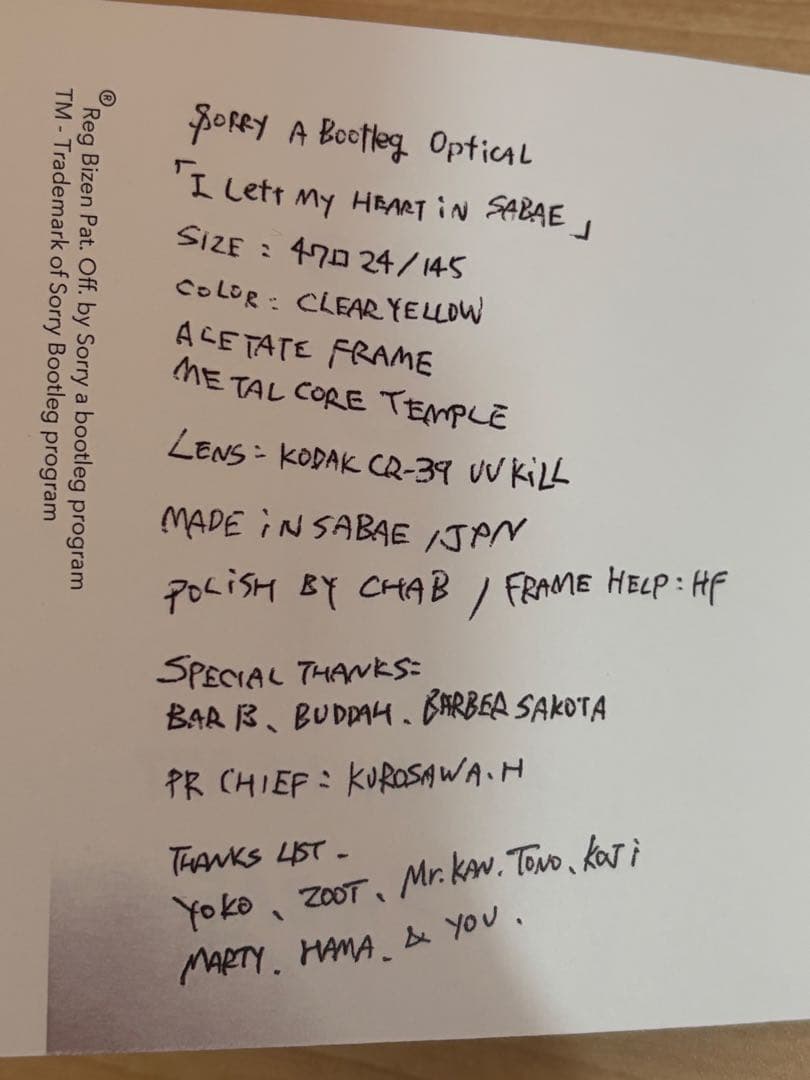 SORRY A Bootleg OpticAL
「I Left MY HEART iN SABAE」
SIZE : 47□24/145
COLOR : CLEAR YELLOW
ACETATE FRAME
METAL CORE TEMPLE
LENS = KODAK CR-39 UV KiLL
MADE iN SABAE /JPN
POLiSH BY CHAB / FRAME HELP : HF
SPECIAL THANKS =
BAR B、BUDDAH、BARBER SAKOTA
PR CHIEF : KUROSAWA.H
THANKS LIST -
YOKO、ZOOT、Mr.KAN、TONO、KOJi
MARTY、HAMA、& YOU.
® Reg Bizen Pat. Off. by Sorry a bootleg program
TM - Trademark of Sorry Bootleg program